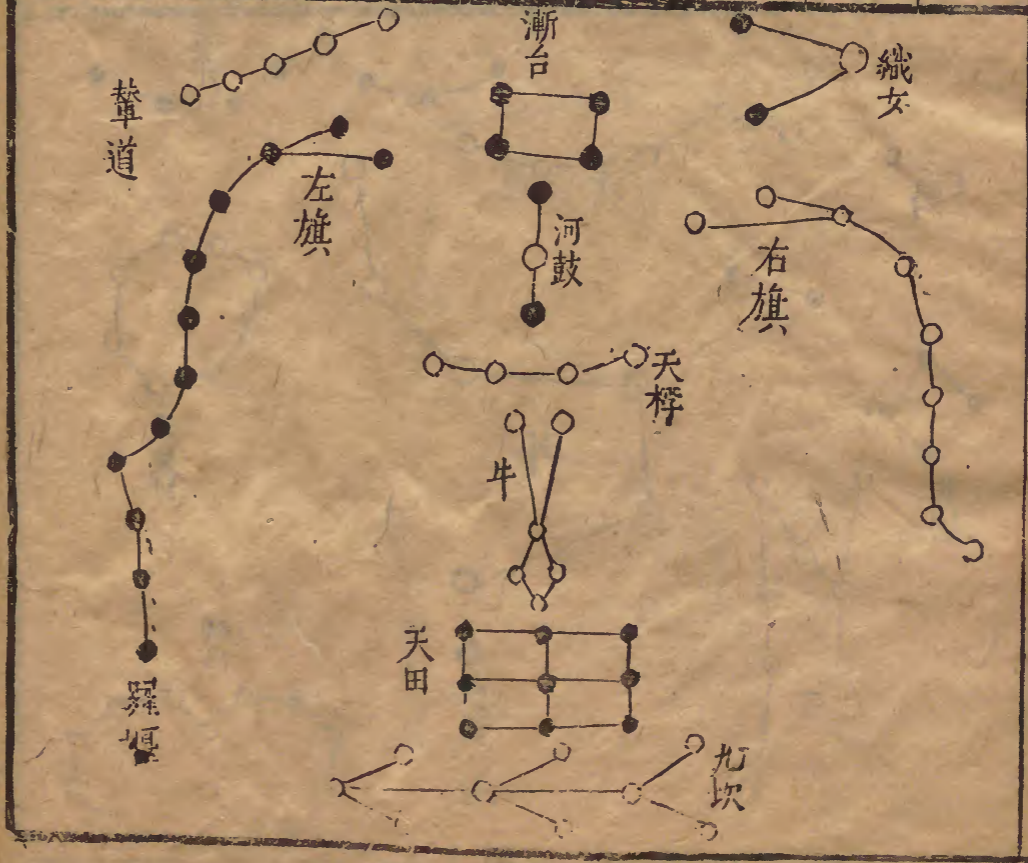 織女
漸台
輦道
右旗
河鼓
左旗
天桴
牛
天田
羅堰
九坎